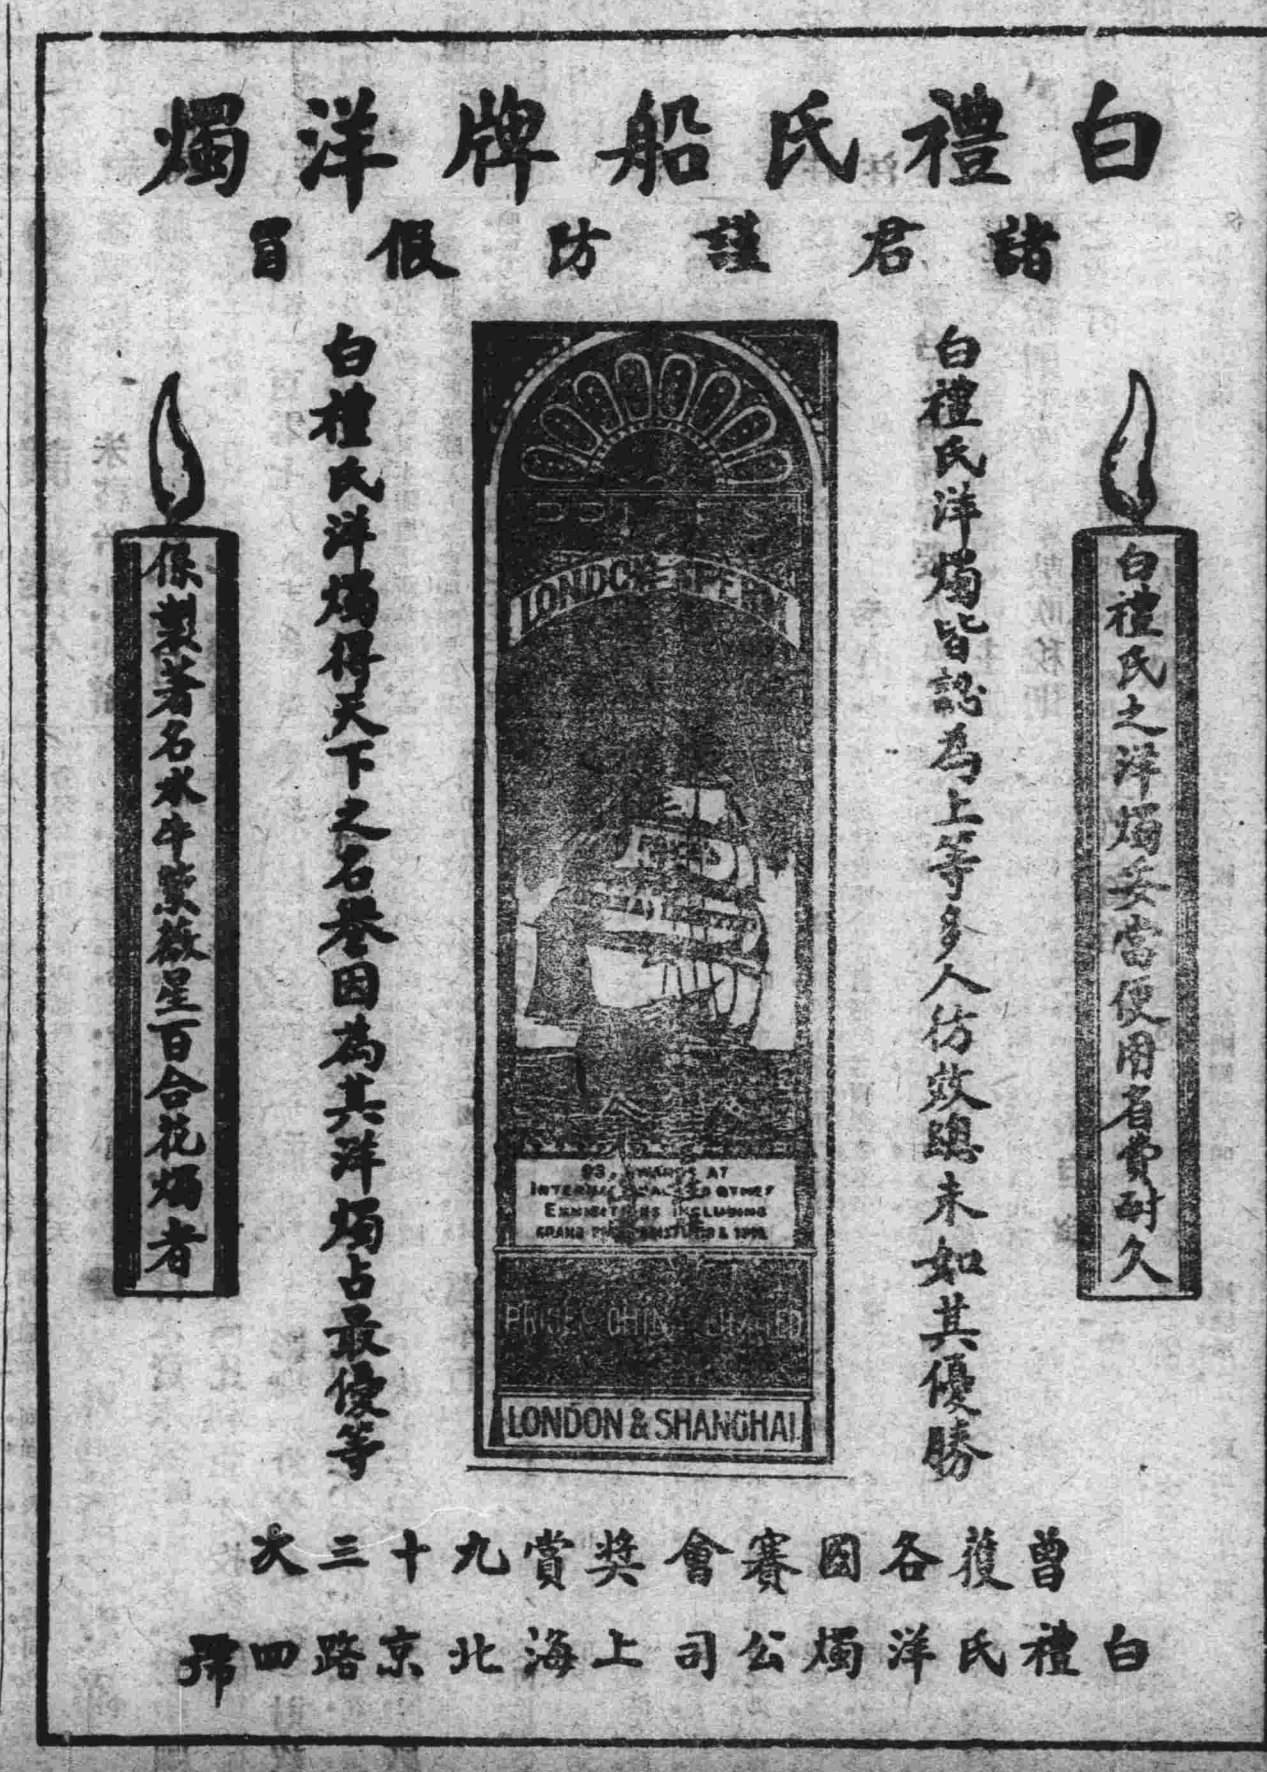 白禮氏船牌洋燭
諸君謹防假冒
白禮氏之洋燭妥當便用省費耐久
白禮氏洋燭皆認為上等多人彷效總未如其優勝
LONDON SPERM
PRICE'S
93, AWARDS AT
INTERNATIONAL AND OTHER
EXHIBITIONS INCLUDING
GRAND PRIX
PRICE'S CHINA LIMITED
LONDON & SHANGHAI
白禮氏洋燭得天下之名譽因為其洋燭占最優等
係製著名水牛紫薇星百合花燭者
曾獲各國賽會獎賞九十三次
白禮氏洋燭公司上海北京路四號